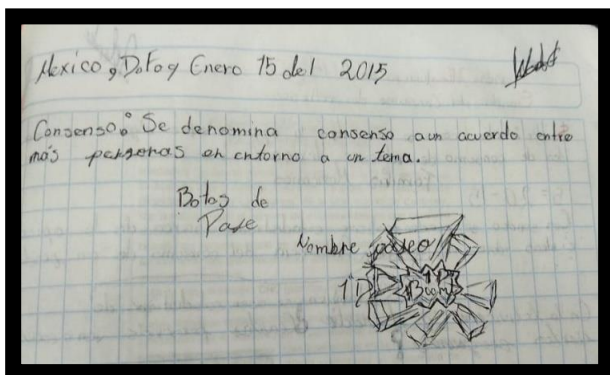 Mexico, D.F. a Enero 15 del 2015
Consenso: Se denomina consenso aun acuerdo entre
más personas en entorno a un tema.
Botas de
Pase
Nombre paseo
1°D
Boom